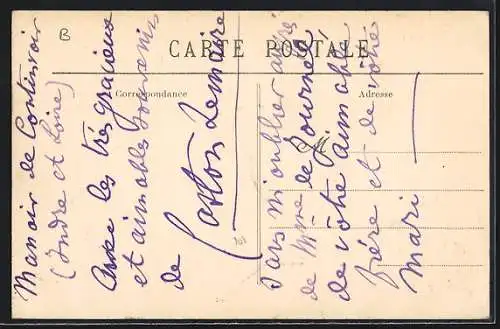 B
CARTE POSTALE
Correspondance
Adresse
Manoir de Continvoir
(Indre et Loire)
Avec les très gracieux
et aimables souvenirs
de
Gaston Lemaire
sans m'oublier auprès
de Mme de
de votre aimable
frère et de votre
mari